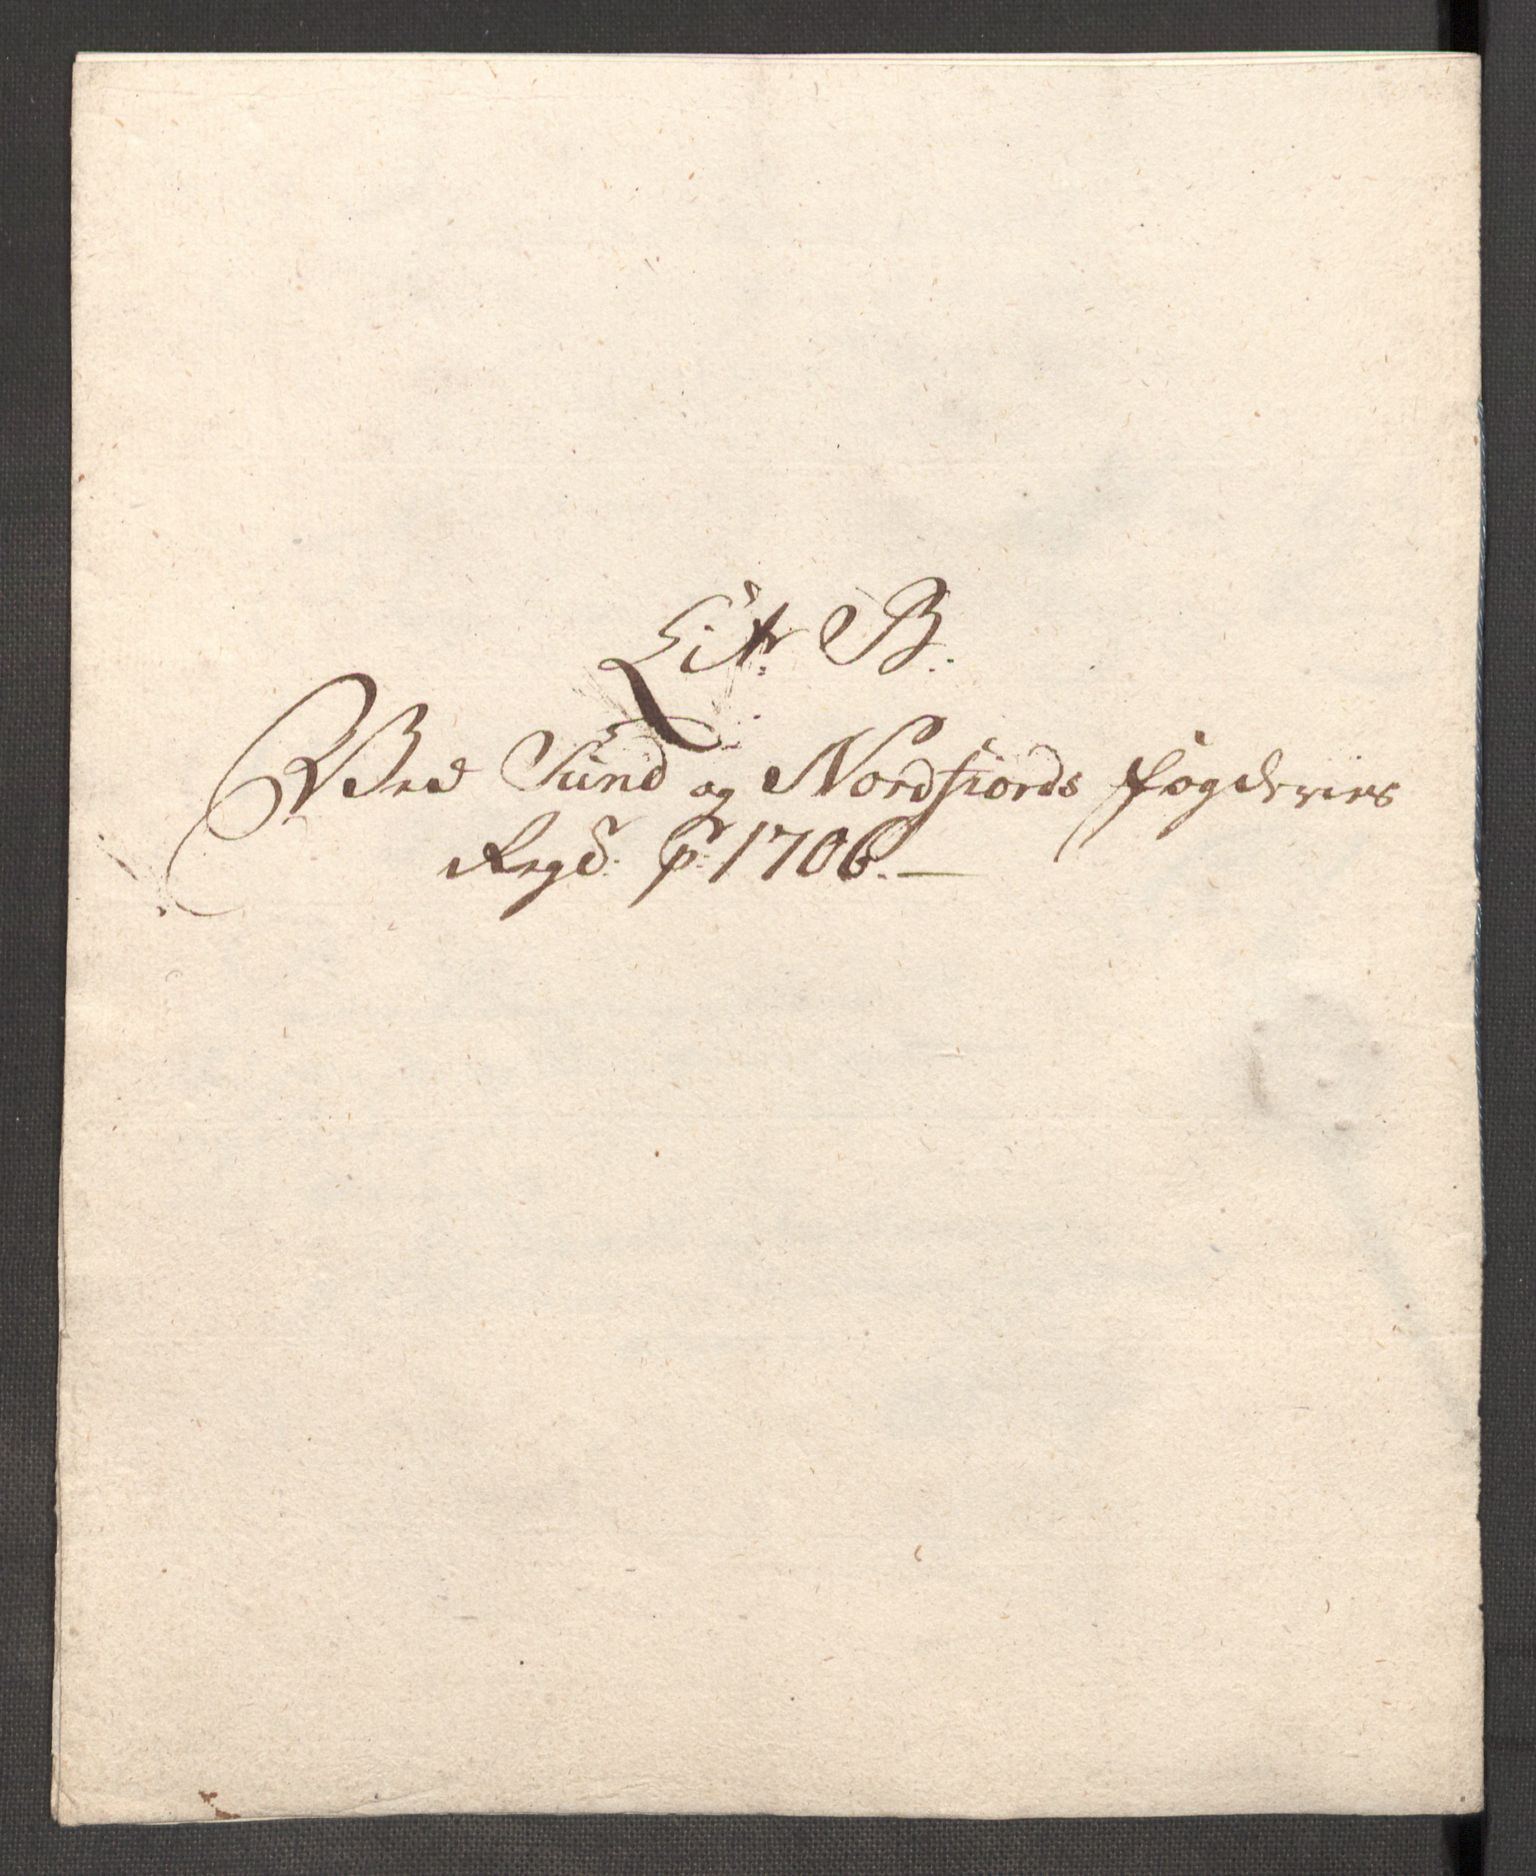 Litr B.
Ved Sund og Nordfiords fogderies
Regs: pr 1706.